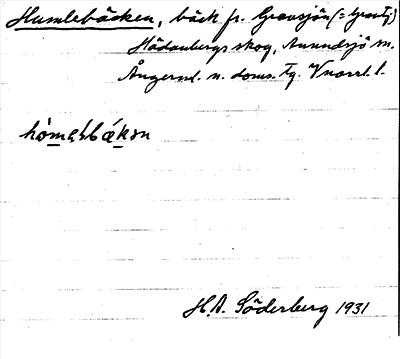 Humlebäcken, bäck fr. Gransjön (= Grantj.)
Hädanbergs skog, Anundsjö sn.
Ångerml. n. doms. tg. Vnorrl. l.
hòmɐʹbǽkɔn
H.A. Söderberg 1931